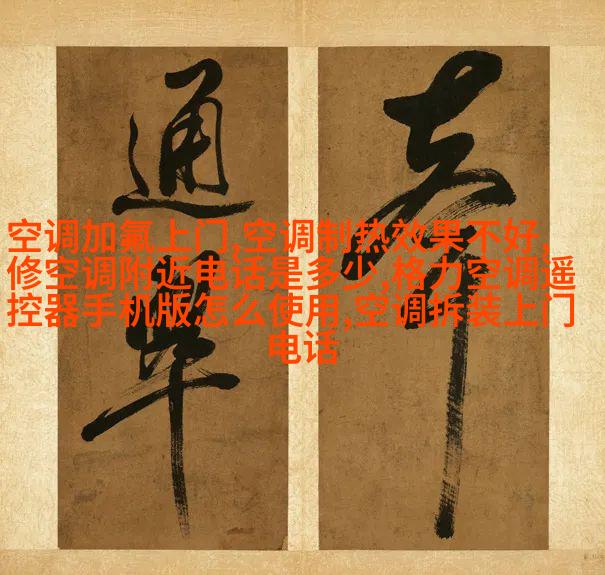 空调加氟上门,空调制热效果不好,
修空调附近电话是多少,格力空调遥
控器手机版怎么使用,空调拆装上门
电话
通